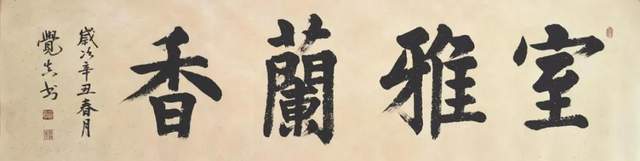 室雅蘭香
歲次辛丑春月
覺真书